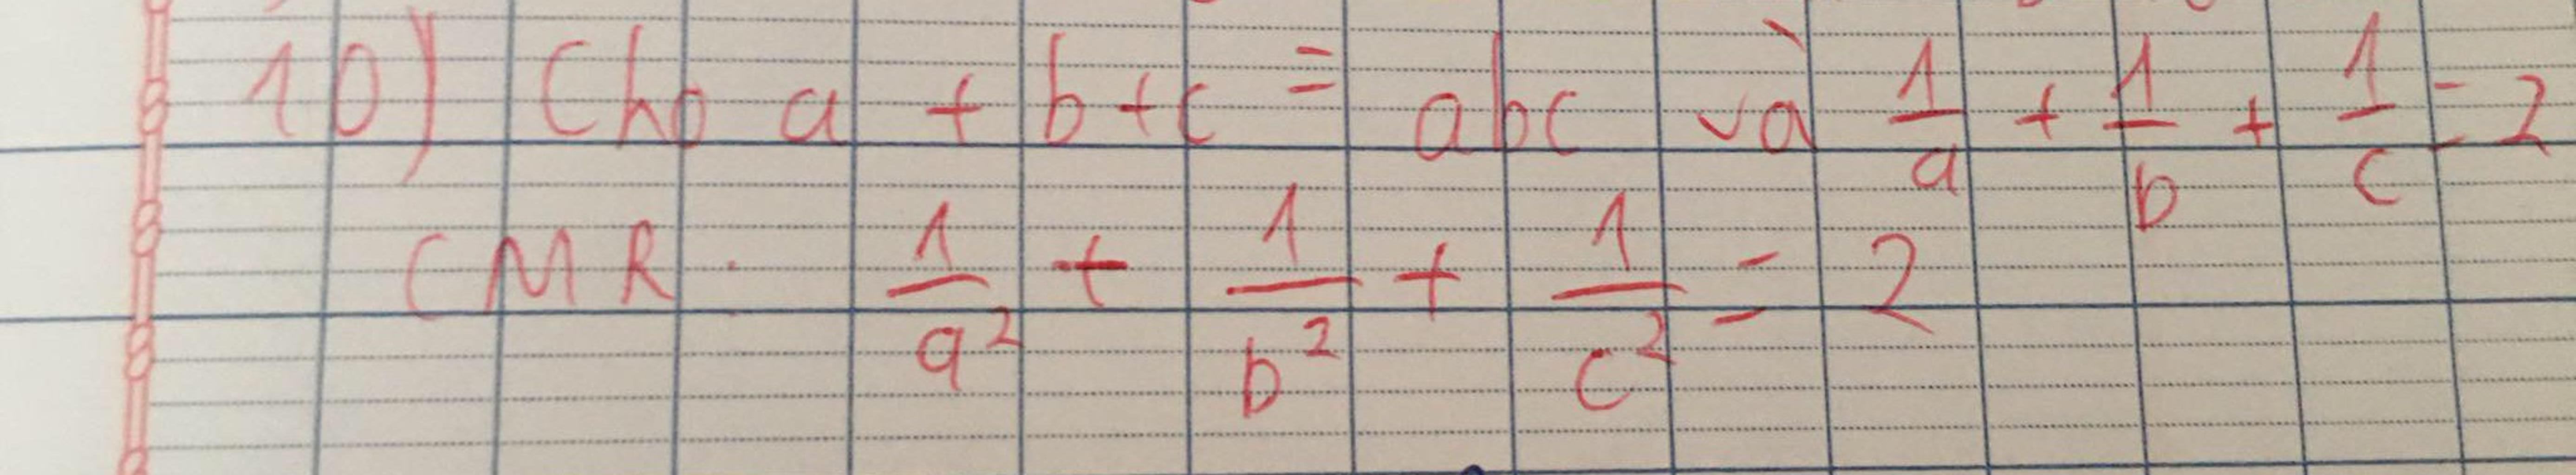 10) Cho a + b + c = abc và 1/a + 1/b + 1/c = 2
CMR. 1/a² + 1/b² + 1/c² = 2